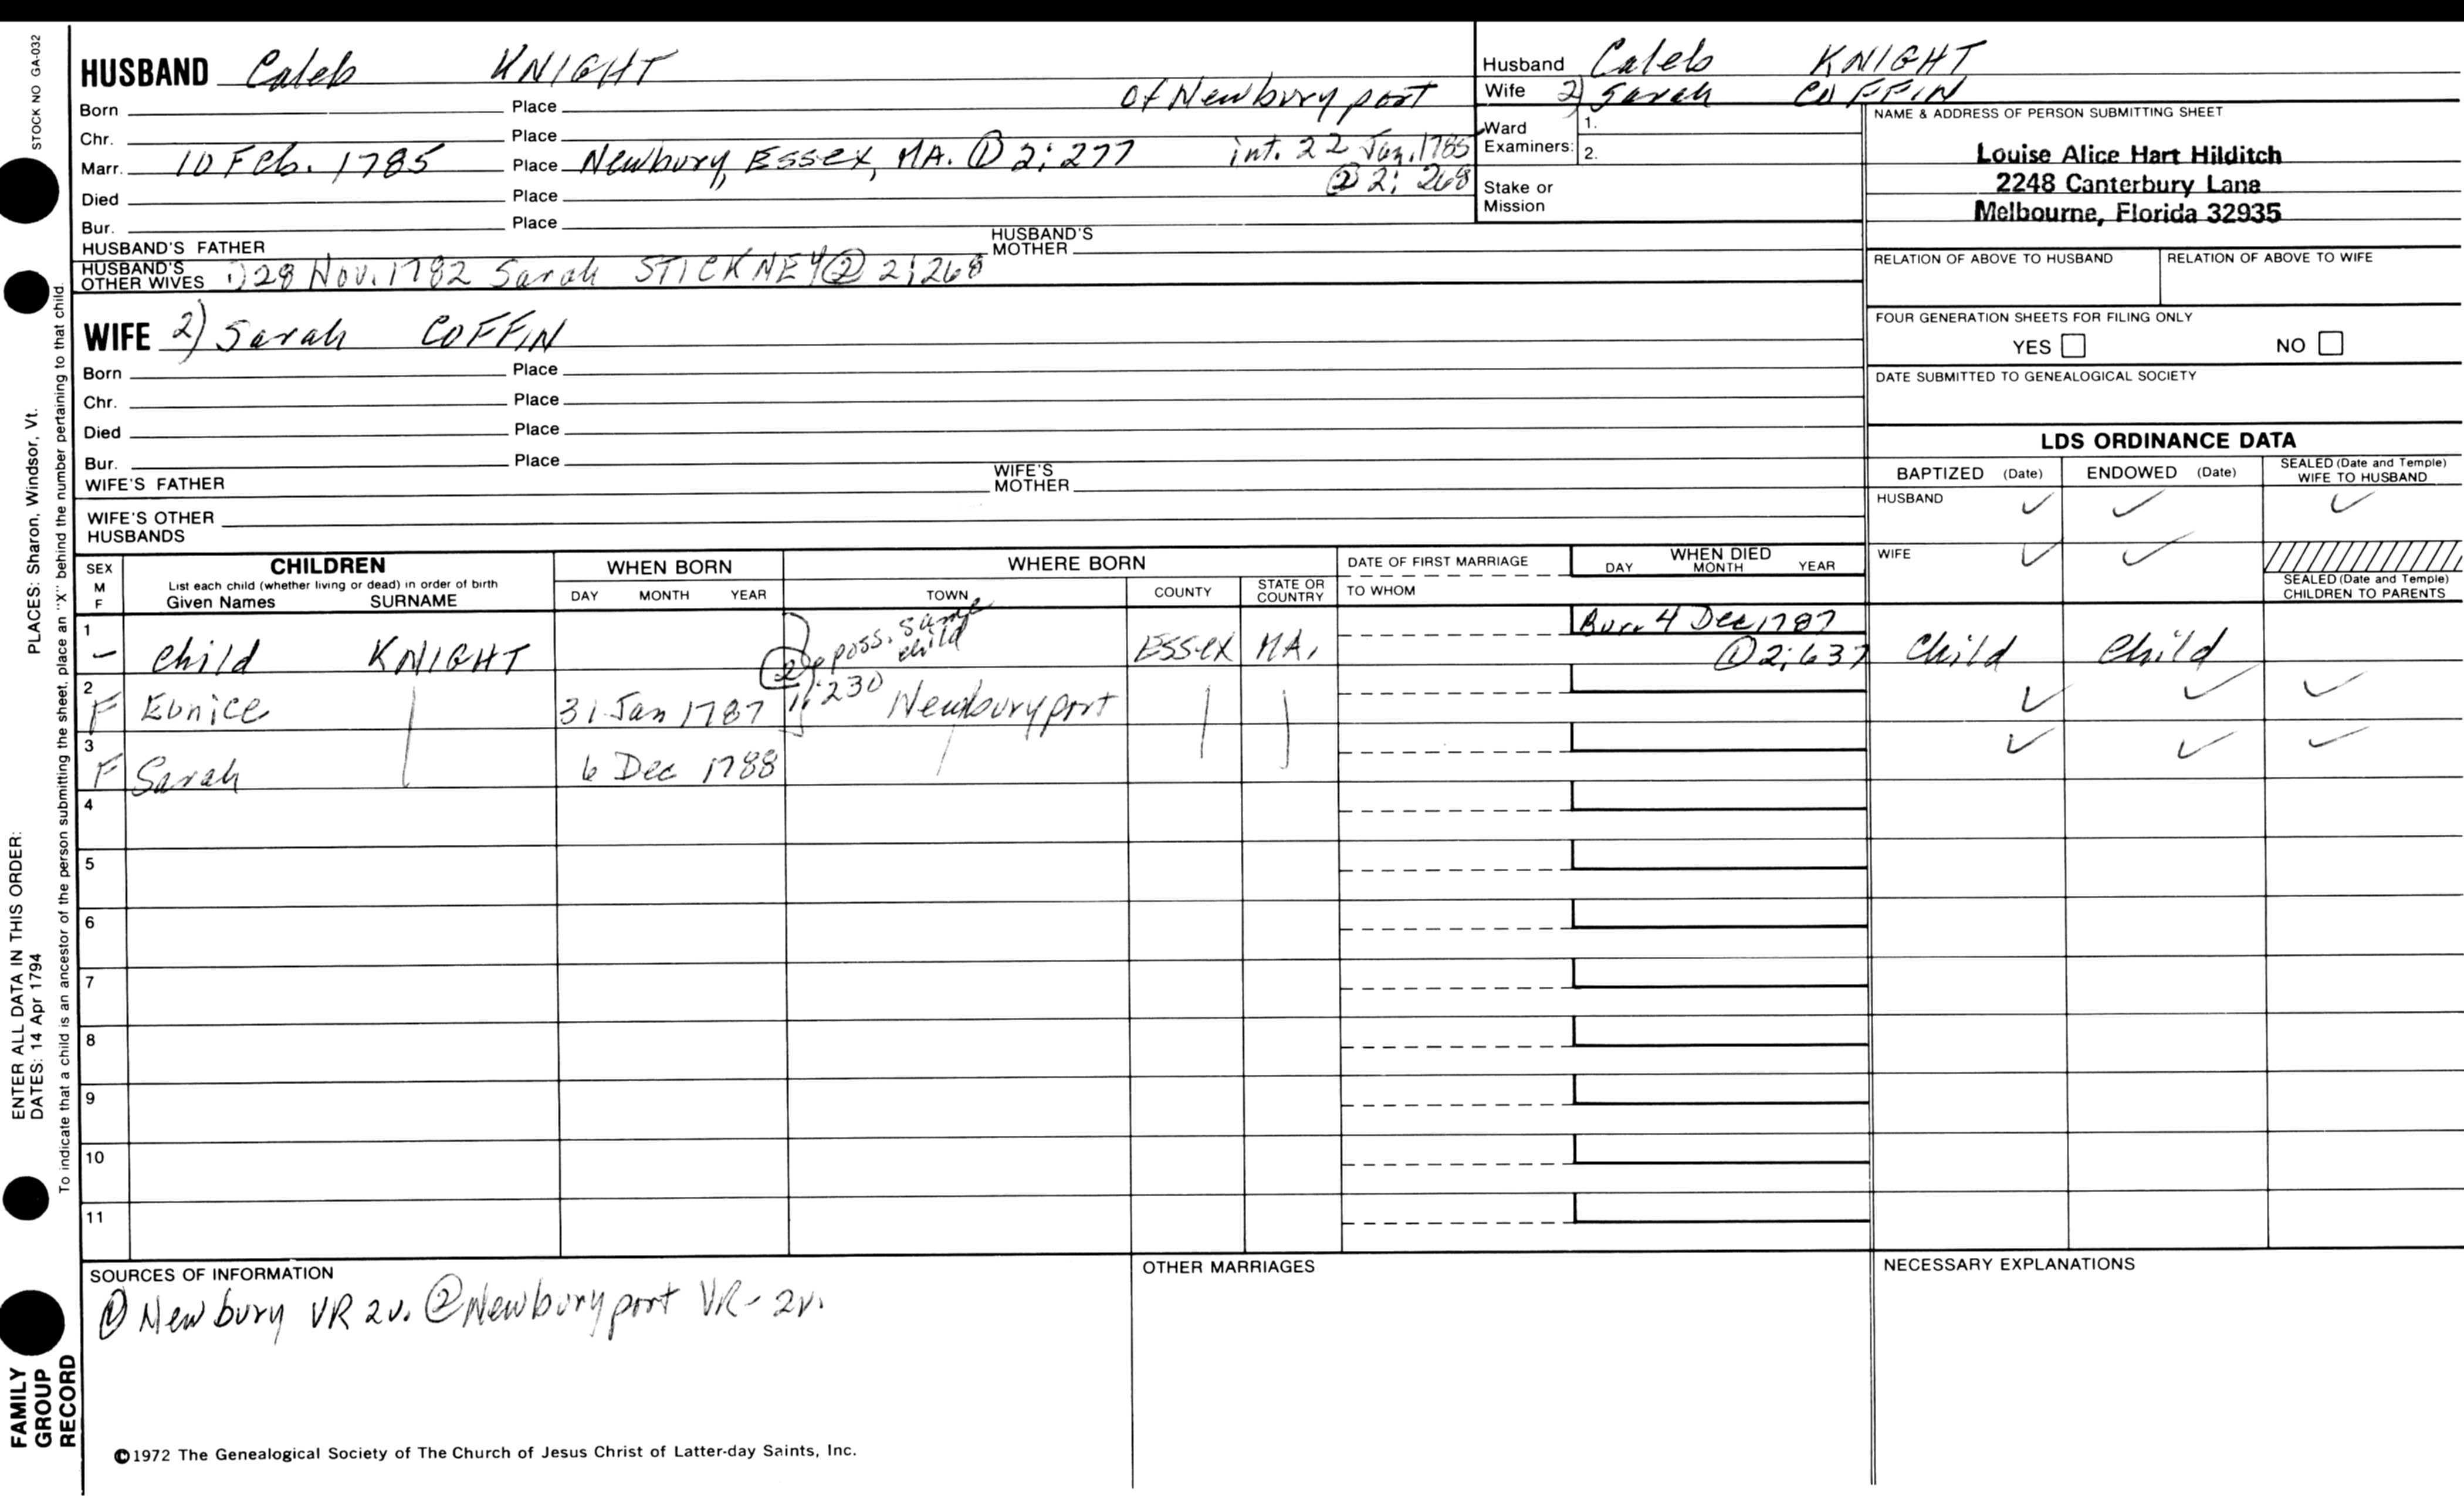 STOCK NO GA-032
HUSBAND Caleb KNIGHT
Born Place of Newburyport
Chr. Place
Marr. 10 Feb. 1785 Place Newbury, Essex, MA. ① 2:277 int. 22 Jan. 1785
② 2:268
Died Place
Bur. Place
HUSBAND'S FATHER HUSBAND'S MOTHER
HUSBAND'S OTHER WIVES 1) 28 Nov. 1782 Sarah STICKNEY ② 2:268
Husband Caleb KNIGHT
Wife 2) Sarah COFFIN
Ward Examiners: 1.
2.
Stake or Mission
NAME & ADDRESS OF PERSON SUBMITTING SHEET
Louise Alice Hart Hilditch
2248 Canterbury Lane
Melbourne, Florida 32935
RELATION OF ABOVE TO HUSBAND RELATION OF ABOVE TO WIFE
FOUR GENERATION SHEETS FOR FILING ONLY
YES NO
DATE SUBMITTED TO GENEALOGICAL SOCIETY
WIFE 2) Sarah COFFIN
Born Place
Chr. Place
Died Place
Bur. Place
WIFE'S FATHER WIFE'S MOTHER
WIFE'S OTHER HUSBANDS
LDS ORDINANCE DATA
BAPTIZED (Date) ENDOWED (Date) SEALED (Date and Temple) WIFE TO HUSBAND
HUSBAND ✓ ✓ ✓
WIFE ✓ ✓
SEALED (Date and Temple) CHILDREN TO PARENTS
SEX M F CHILDREN WHEN BORN WHERE BORN DATE OF FIRST MARRIAGE WHEN DIED
List each child (whether living or dead) in order of birth
Given Names SURNAME DAY MONTH YEAR TOWN COUNTY STATE OR COUNTRY TO WHOM DAY MONTH YEAR
1 – Child KNIGHT poss. same child Essex MA. Bur. 4 Dec 1787
① 2:637 Child Child
2 F Eunice 31 Jan 1787 ② 1:230 Newburyport ✓ ✓ ✓
3 F Sarah 6 Dec 1788 ✓ ✓ ✓
4
5
6
7
8
9
10
11
SOURCES OF INFORMATION OTHER MARRIAGES NECESSARY EXPLANATIONS
① Newbury VR 2v. ② Newburyport VR - 2v.
©1972 The Genealogical Society of The Church of Jesus Christ of Latter-day Saints, Inc.
FAMILY GROUP RECORD
ENTER ALL DATA IN THIS ORDER:
DATES: 14 Apr 1794 PLACES: Sharon, Windsor, Vt.
To indicate that a child is an ancestor of the person submitting the sheet, place an "X" behind the number pertaining to that child.